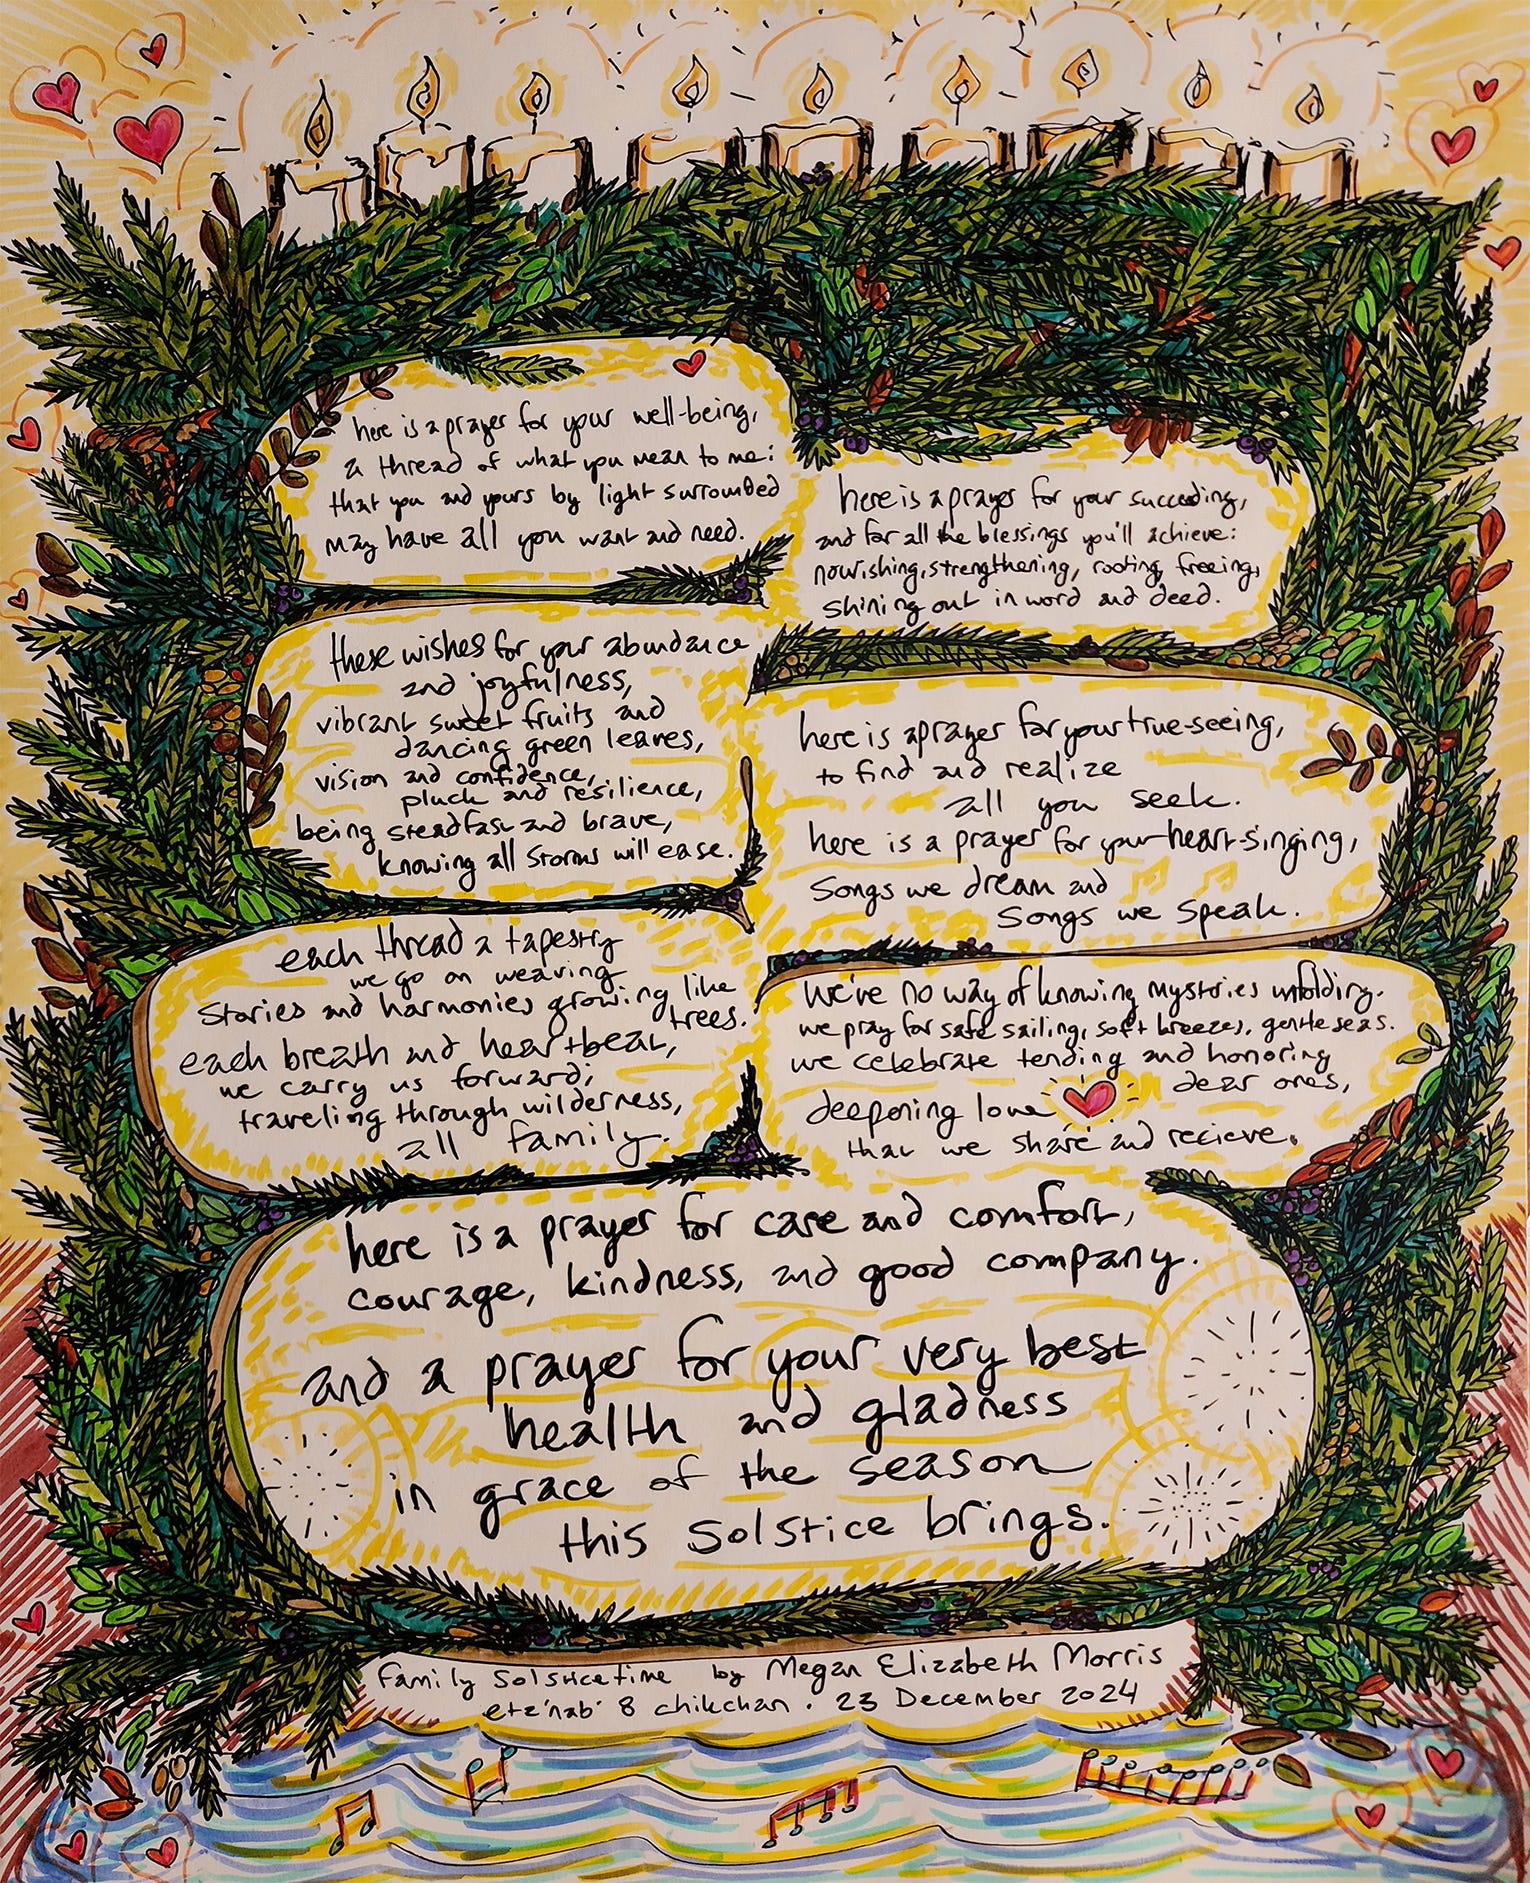 here is a prayer for your well-being,
a thread of what you mean to me:
that you and yours by light surrounded
may have all you want and need.
here is a prayer for your succeeding,
and for all the blessings you'll achieve:
nourishing, strengthening, rooting, freeing,
shining out in word and deed.
these wishes for your abundance
and joyfulness,
vibrant sweet fruits and
dancing green leaves,
vision and confidence,
pluck and resilience,
being steadfast and brave,
knowing all storms will ease.
here is a prayer for your true-seeing,
to find and realize
all you seek.
here is a prayer for your heart-singing,
songs we dream and
songs we speak.
each thread a tapestry
we go on weaving
stories and harmonies growing like
trees.
each breath and heartbeat,
we carry us forward;
traveling through wilderness,
all family.
we've no way of knowing mysteries unfolding.
we pray for safe sailing, soft breezes, gentle seas.
we celebrate tending and honoring
dear ones,
deepening love
that we share and recieve.
here is a prayer for care and comfort,
courage, kindness, and good company.
and a prayer for your very best
health and gladness
in grace of the season
this solstice brings.
Family Solsticetime by Megan Elizabeth Morris
etz'nab' 8 chikchan . 23 December 2024